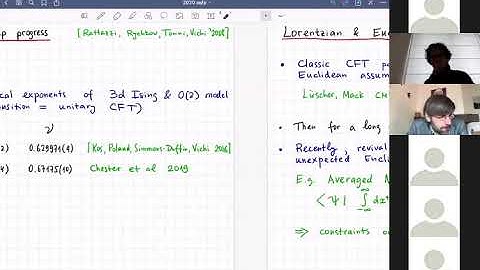 2020 oslo
p progress
[Rattazzi, Rychkov, Tonni, Vichi 2008]
cal exponents of 3d Ising & O(2) model
nsition = unitary CFT)
ν
2) 0.629971(4) [Kos, Poland, Simmons-Duffin, Vichi 2016]
4) 0.67175(10) Chester et al 2019
Lorentzian & Euc
Classic CFT pa
Euclidean assum
Lüscher, Mack CM
Then for a long
Recently, revival
unexpected Encli
E.g. Averaged N
<Ψ| ∫ dx
⇒ constraints o